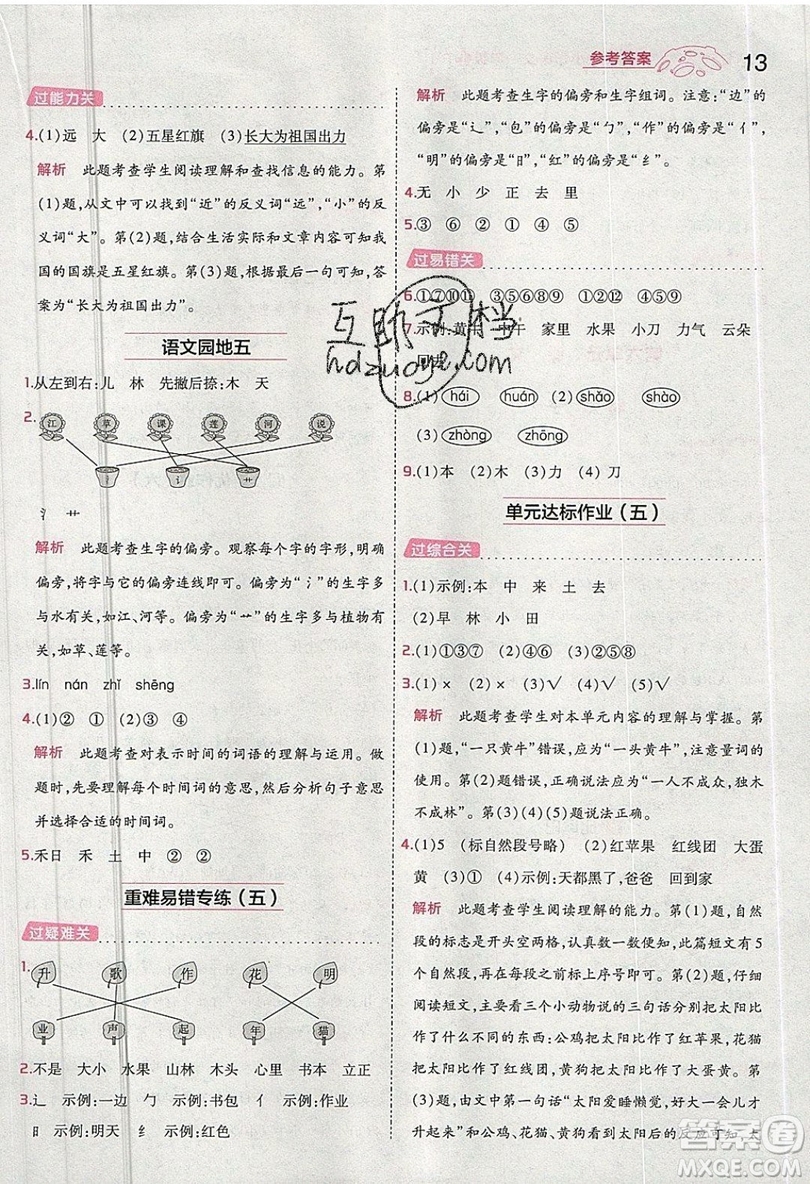 参考答案
13
过能力关
4.(1)远 大 (2)五星红旗 (3)长大为祖国出力
解析 此题考查学生阅读理解和查找信息的能力。第
(1)题,从文中可以找到“近”的反义词“远”,“小”的反
义词“大”。第(2)题,结合生活实际和文章内容可知,我
国的国旗是五星红旗。第(3)题,最后一句可知,答
案为“长大为祖国出力”。
语文园地五
1.从左到右:儿 林 先撇后捺:木 天
2.
江 草 课 莲 河 说
氵 艹
解析 此题考查生字的偏旁。观察每个字的字形,明确
偏旁,将字与它的偏旁连线即可。偏旁“氵”的生字多
与水有关,如江、河等。偏旁为“艹”的生字多与植物有
关,如草、莲等。
3.lín nán zhǐ shēng
4.(1)② ① (2)③ ④
解析 此题考查对表示时间的词语的理解与运用。做
题时,先要理解每个时间词的意思,然后分析句子意思
并选择合适的时间词。
5.禾日 禾 土 中 ②②②
重难易错专练(五)
过疑难关
1.
升 歌 作 花 明
业 声 起 年 猫
2.不是 大小 水果 山林 木头 心里 书本 立正
3.辶 示例:一边 勹 示例:书包 亻 示例:作业
日 示例:明天 纟 示例:红色
解析 此题考查生字的偏旁和生字组词。注意:“边”的
偏旁是“辶”,“包”的偏旁是“勹”,“作”的偏旁是“亻”,
“明”的偏旁是“日”,“红”的偏旁是“纟”。
4.无 小 少 正 去 里
5.③ ⑥ ② ① ④ ⑤
过易错关
6.①⑦⑩⑪ ③⑥⑧ ①②⑫ ④⑤⑨
7.示例:黄牛 中午 家里 水果 小刀 力气 云朵
回去
8.(1) hái huán (2) shǎo shào
(3) zhòng zhōng
9.(1)本 (2)木 (3)力 (4)刀
单元达标作业(五)
过综合关
1.(1)示例:本 中 来 土 去
(2)早 林 小 田
2.(1)①③⑦ (2)④⑥ (3)②⑤⑧
3.(1)× (2)× (3)√ (4)√
解析 此题考查学生对本单元内容的理解与掌握。第
(1)题,“一只黄牛”错误,应为“一头黄牛”,注意量词的
使用。第(2)题错误,正确说法应为“一人不成众,独木
不成林”。第(3)(4)题说法正确。
4.(1)5 (标自然段号略) (2)红苹果 红线团 大蛋
黄 (3)① (4)示例:天都黑了,爸爸 回家
解析 此题考查学生阅读理解的能力。第(1)题,自然
段的标志是开头空两格,数一数便知,此篇短文有5
个自然段,在每段开头标上序号即可。第(2)题,仔细
阅读短文,不难发现三个小动物说的三句话把太阳比
作了什么不同的东西:公鸡把太阳比作了红苹果,花猫
把太阳比作了红线团,黄狗把太阳比作了大蛋黄。第
(3)题,由文中第一句话“太阳爱睡懒觉,好大一会儿才
升起来”和公鸡、花猫、黄狗看到太阳后的反应可知,太
互助文档
hdzuoye.com
答案圈
MXQE.COM